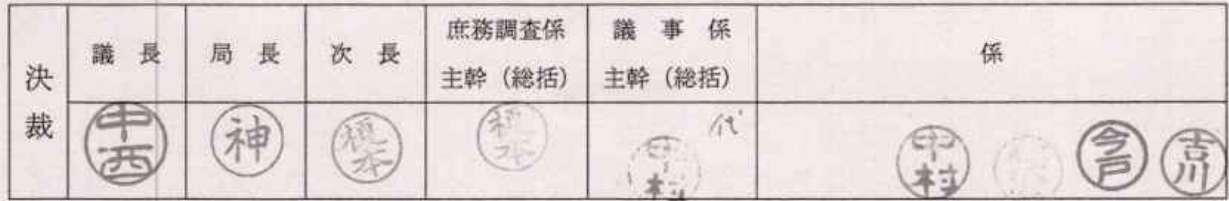 決裁
議長
局長
次長
庶務調査係
主幹（総括）
議事係
主幹（総括）
係
中西
神
榎本
榎本
代
中村
中村
今戸
吉川